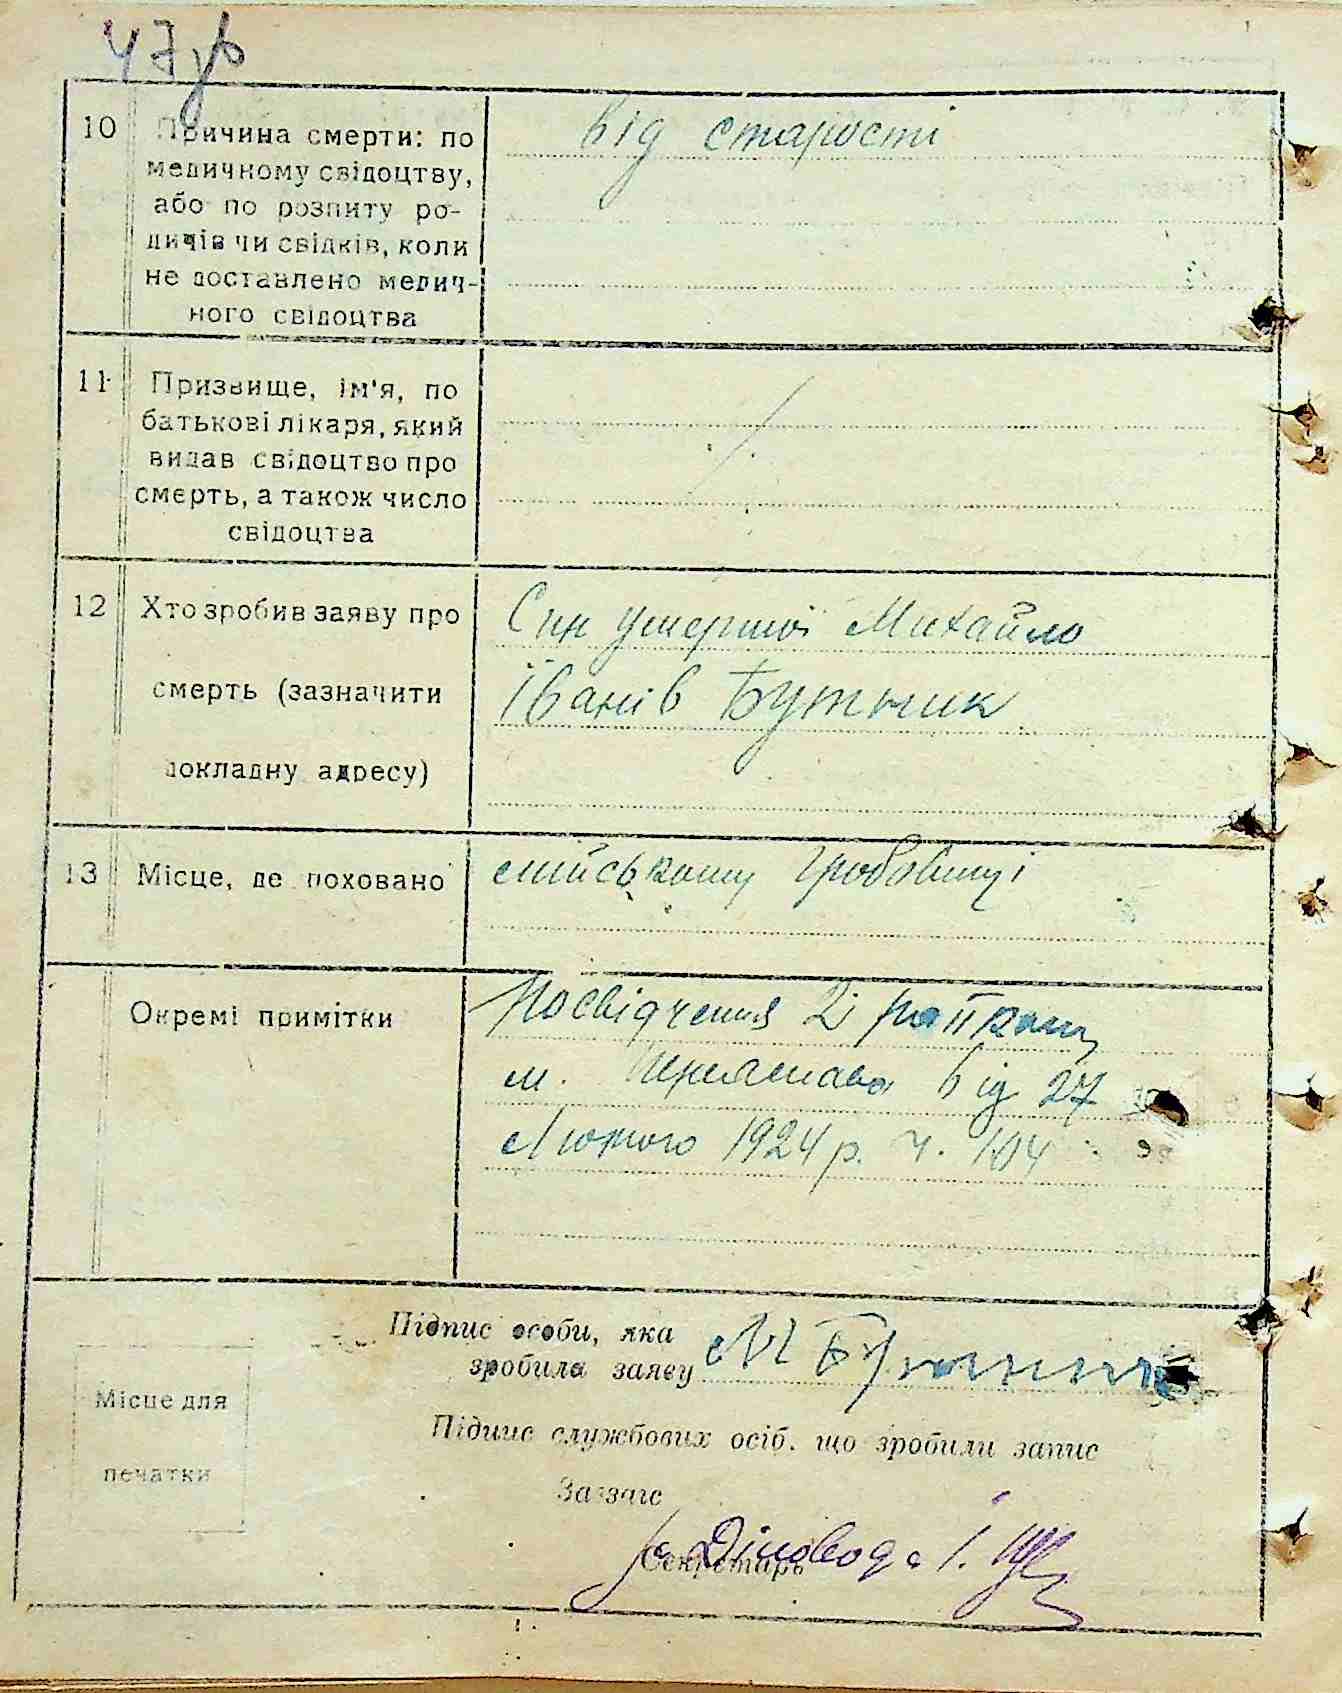 47
10 Причина смерти: по
медичному свідоцтву,
або по розпиту ро-
дичів чи свідків, коли
не доставлено медич-
ного свідоцтва
від старості
11 Призвище, ім'я, по
батькові лікаря, який
видав свідоцтво про
смерть, а також число
свідоцтва
12 Хто зробив заяву про
смерть (зазначити
докладну адресу)
Син умершої Михайло
Іванів Бутник
13 Місце, де поховано
міському гробовищі
Окремі примітки
Посвідчення 2 райкому
м. Переяслава від 27
Лютого 1924 р. ч. 104
Підпис особи, яка
зробила заяву М Бутник
Підпис службових осіб, що зробили запис
Зав загс
Секретарь
Діловода І.
Місце для
печатки